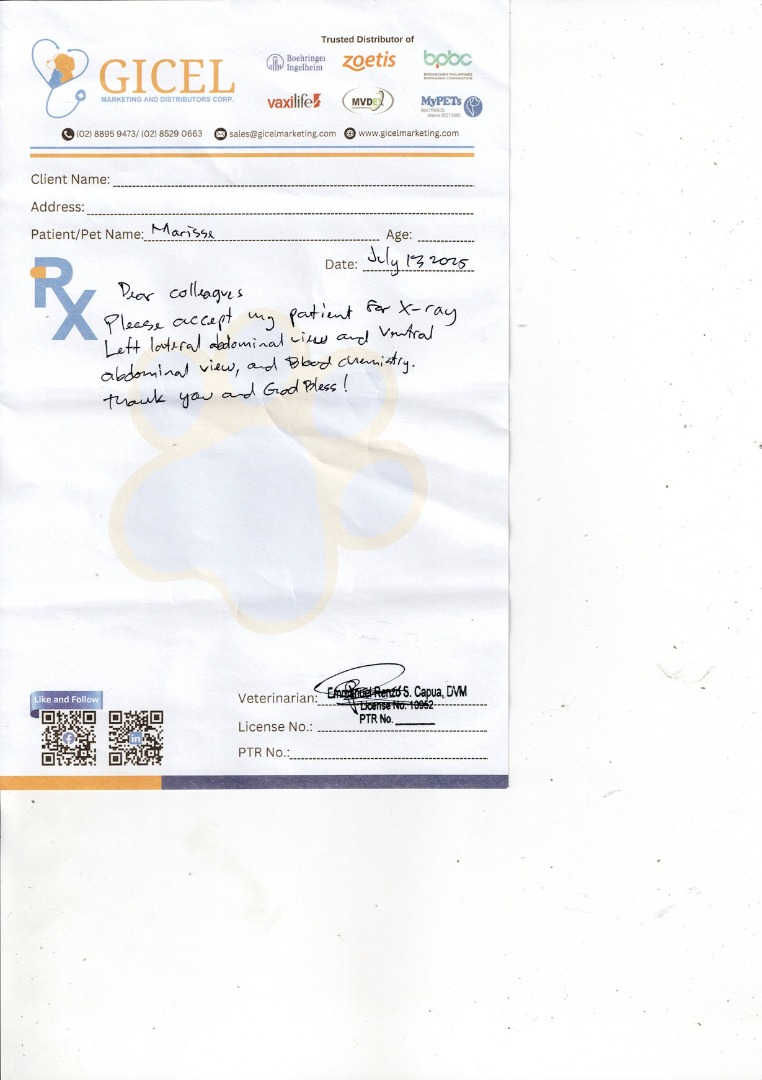 Trusted Distributor of
Boehringer Ingelheim
zoetis
bpbc
BROADCHEM PHILIPPINES
GICEL
MARKETING AND DISTRIBUTORS CORP.
vaxilife
MVDEX
MyPETs
(02) 8895 9473/ (02) 8529 0663 sales@gicelmarketing.com www.gicelmarketing.com
Client Name:
Address:
Patient/Pet Name: Marisse Age:
Date: July 13 2025
RX
Dear colleagues
Please accept my patient for X-ray
Left lateral abdominal view and Ventral
abdominal view, and Blood chemistry.
Thank you and God Bless!
Like and Follow
Veterinarian: Emmanuel Renzo S. Capua, DVM
License No. 10952
License No.:
PTR No.
PTR No.: